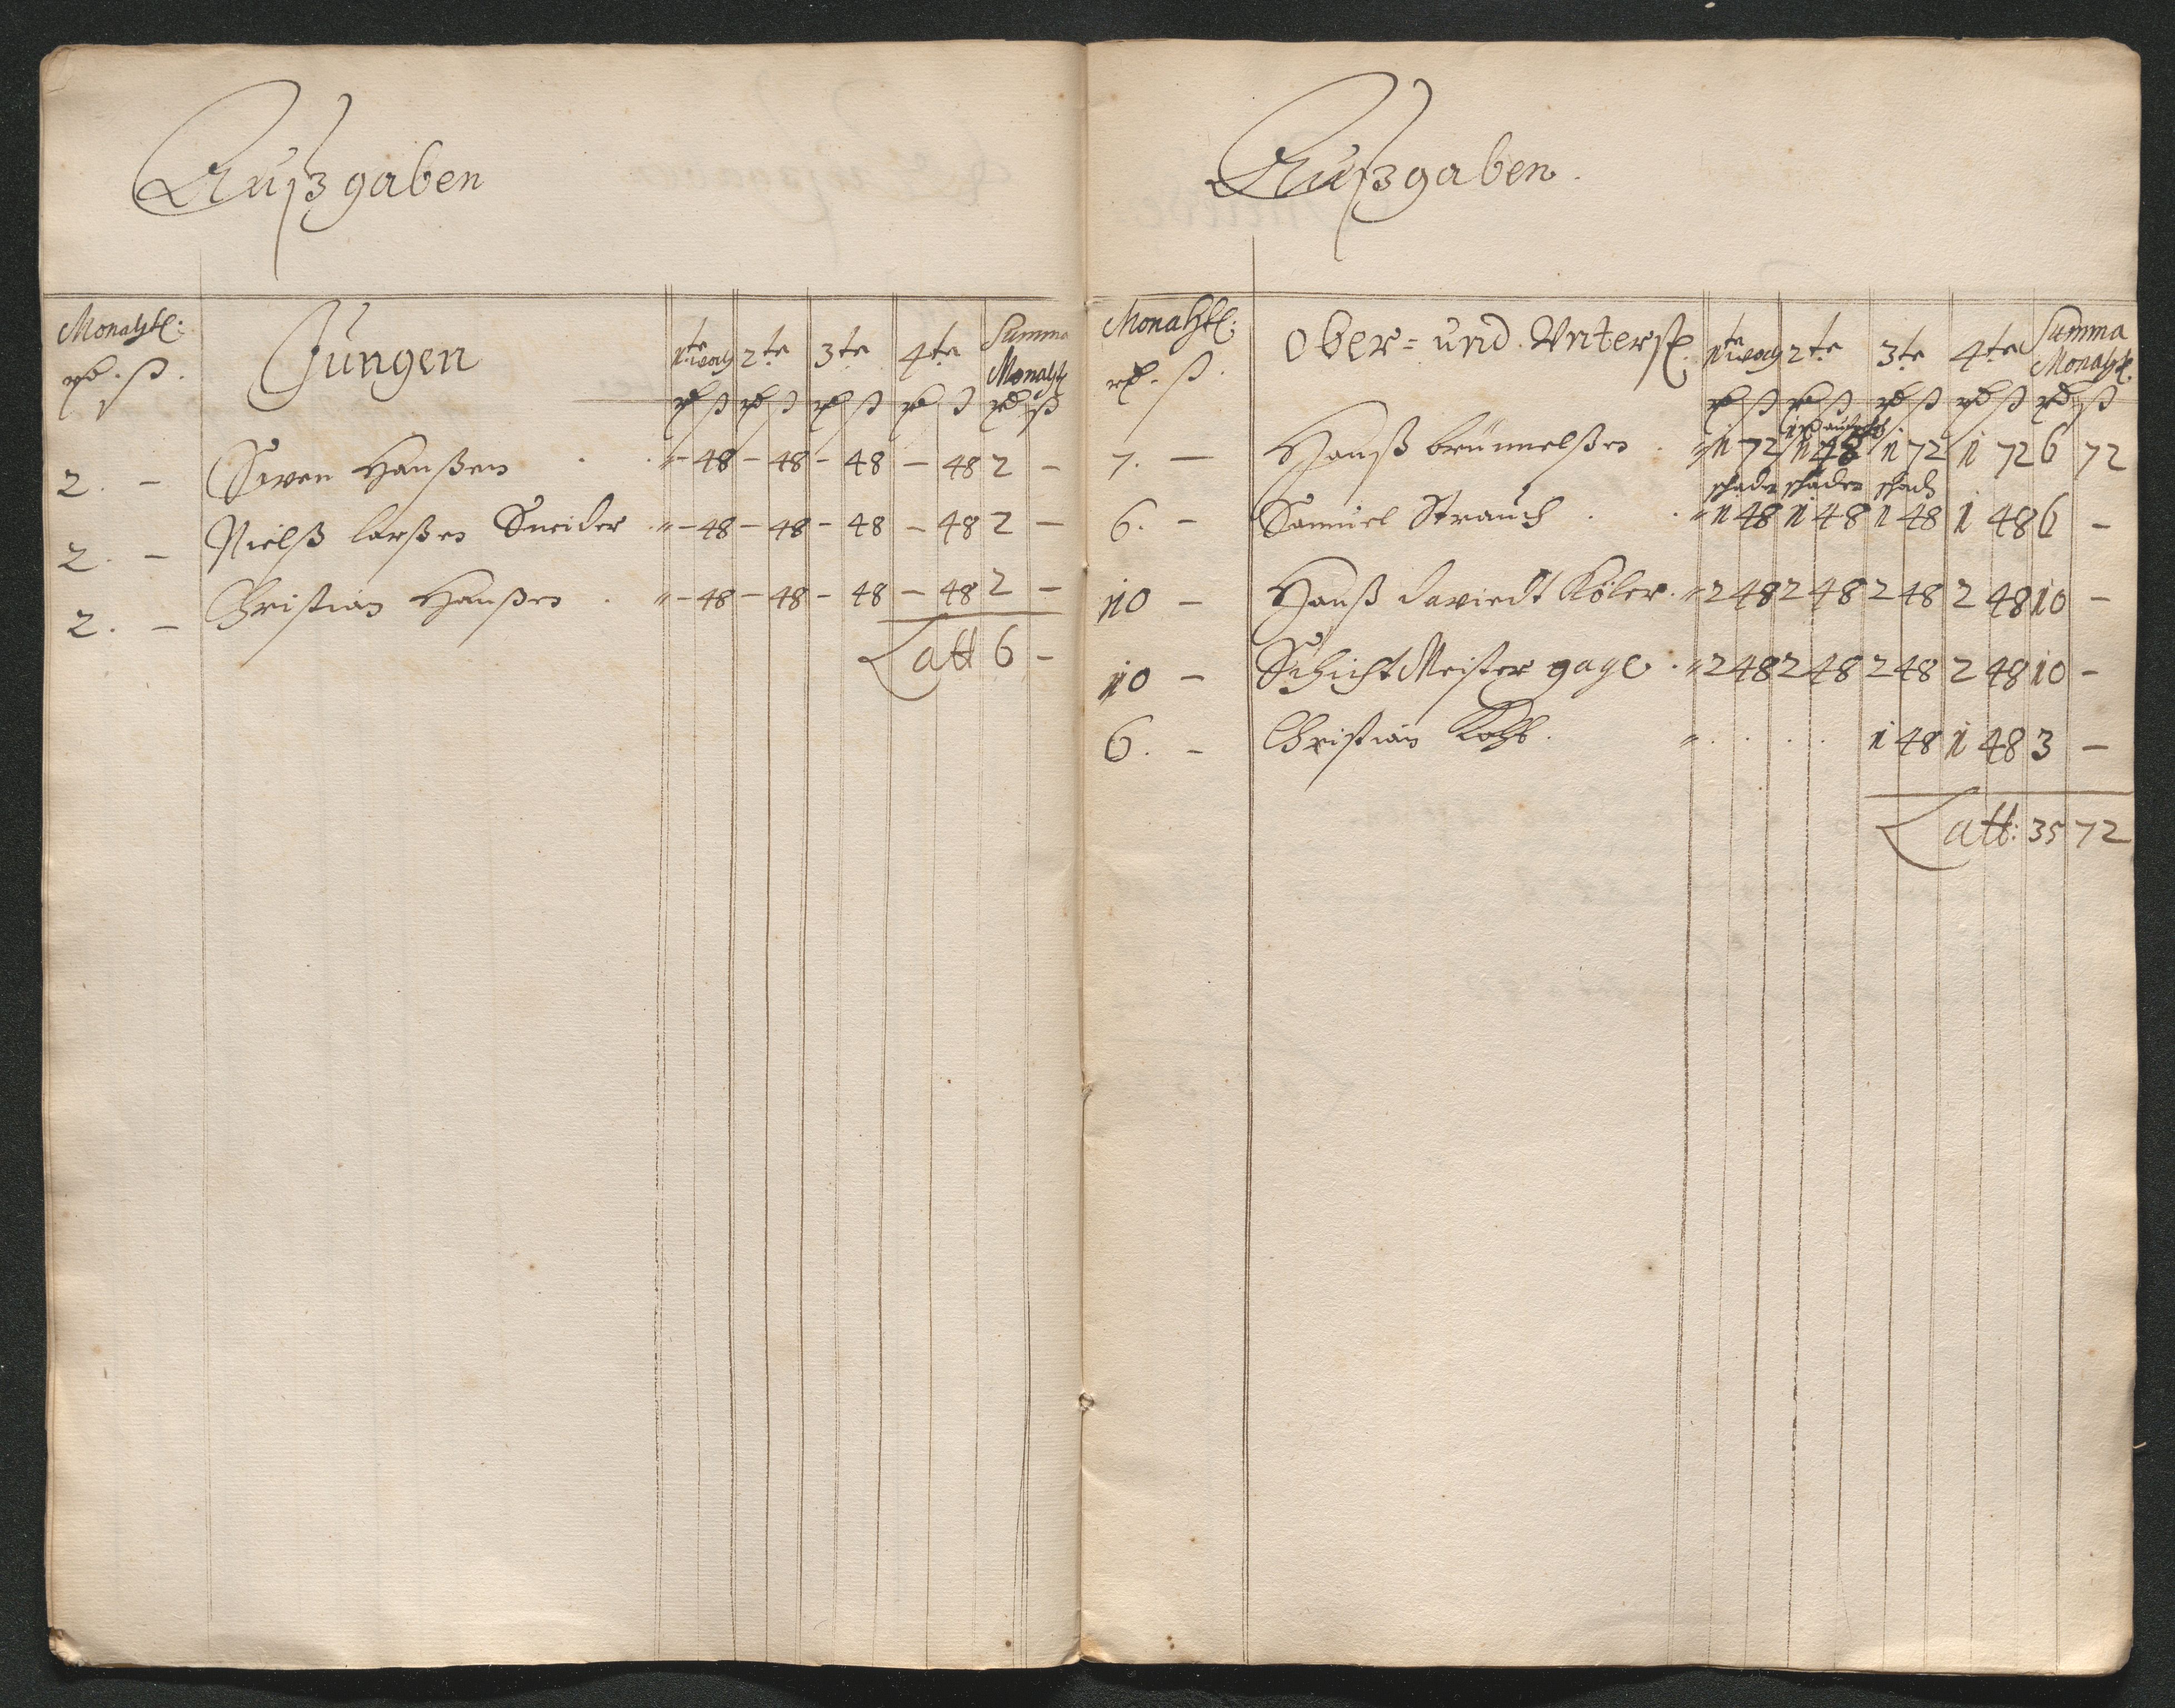 Außgaben
Monahtl: Jungen 1te woch 2te 3te 4te Summa Monahtl
rd. ß. rd ß rd ß rd ß rd ß rd ß
2. - Swen Hanßen . . - 48 - 48 - 48 - 48 2 -
2. - Nielß Larßen Sneider . - 48 - 48 - 48 - 48 2 -
2. - Christian Hanßen . - 48 - 48 - 48 - 48 2 -
Latt 6 -
Außgaben.
Monahtl: Ober= und Unterst. 1te woch 2te 3te 4te Summa Monahtl.
rd. ß. rd ß rd ß rd ß rd ß rd ß
7. - Hanß . 1 72 1 48 1 72 1 72 6 72
6. - Samuel Strauch . . 1 48 1 48 1 48 1 48 6 -
10 - Hanß Daviedt Köler. 2 48 2 48 2 48 2 48 10 -
10 - SchichtMeister gage . 2 48 2 48 2 48 2 48 10 -
6. - Christian . . . . . 1 48 1 48 3 -
Latt: 35 72